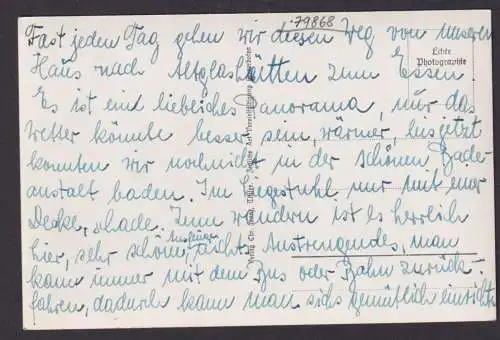 79868
Fast jeden Tag gehen wir diesen Weg von unseren
Echte
Photographie
Haus nach Altglashütten zum Essen
Es ist eine liebliches Panorama, nur das
Wetter könnte besser sein, wärmer, bis jetzt
konnten wir noch nicht in der schönen Bade-
anstalt baden. Im Liegestuhl nur mit einer
Decke, schade. Zum wandern ist es herrlich
Ausflüge
hier, sehr schöne, nichts Anstrengendes, man
kann immer mit dem Bus oder Bahn zurück-
fahren, dadurch kann man sichs gemütlich einrichten
Verlag Chr.